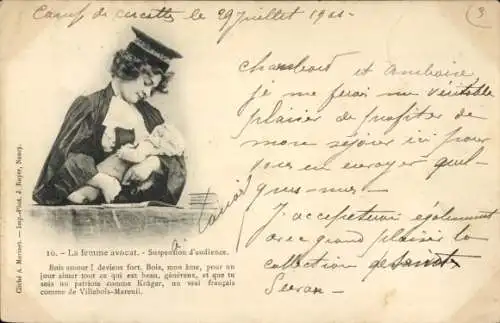 Camp de cercottes le 29 juillet 1901
3
Chambord et Amboise
je me ferai un véritable
plaisir de profiter de
mon séjour ici pour
vous en envoyer quel-
ques-unes.
J'accepterai également
avec grand plaisir la
collection de
Cliché A. Merinet. — Imp.-Phot. J. Royer, Nancy.
10. - La femme avocat. - Suspension d'audience.
Bois amour ! deviens fort. Bois, mon âme, pour un
jour aimer tout ce qui est beau, généreux, et que tu
sois un patriote comme Krüger, un vrai français
comme de Villebois-Mareuil.